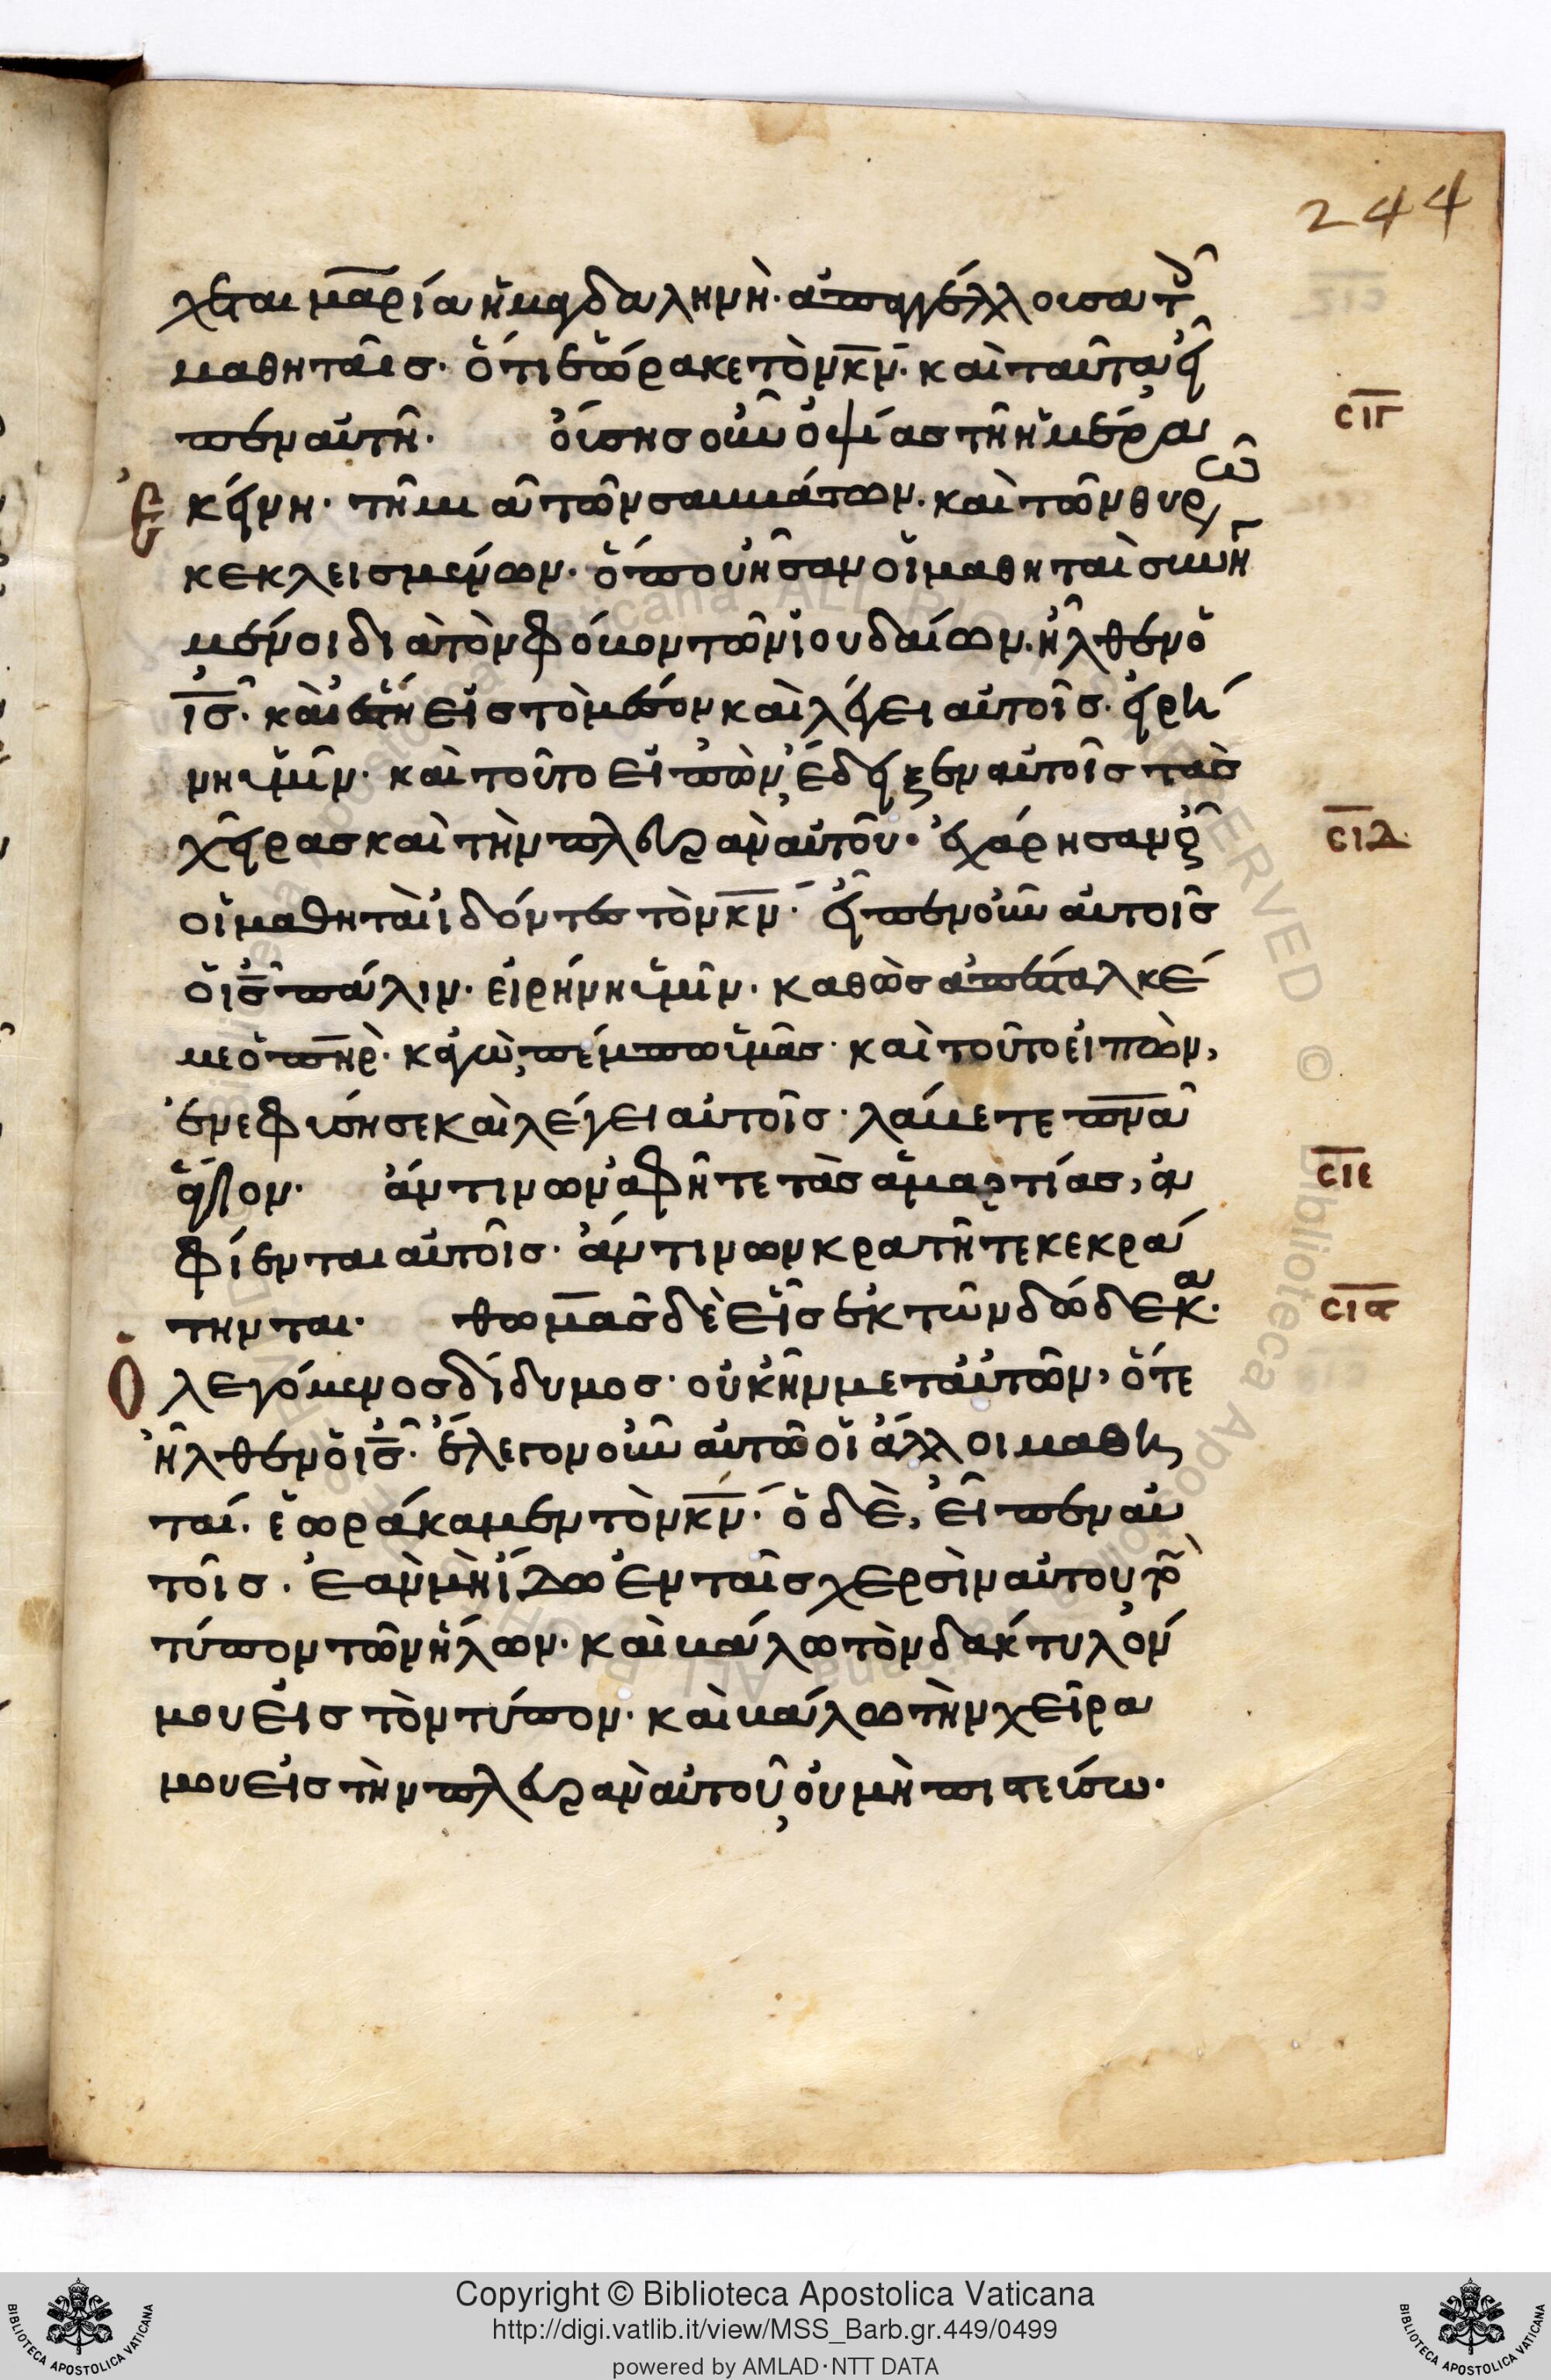 244
χεται μαρία ἡ μαγδαληνὴ· ἀπαγγέλλουσα τοῖ
μαθηταῖς· ὅτι ἑώρακε τὸν κν· καὶ ταῦτα εἶ
πεν αὐτῆ· οὔσης οὖν ὀψίας τῆ ἡμέρα
σιγ
ἐκείνη· τῆ μιᾶ τῶν σαββάτων· καὶ τῶν θυρῶ
κεκλεισμένων· ὅπου ἦσαν οἱ μαθηταὶ συνη
μένοι διὰ τὸν φόβον τῶν ἰουδαίων· ἦλθεν ὁ
ις· καὶ ἔστη εἰς τὸ μέσον καὶ λέγει αὐτοῖς· εἰρή
νη ὑμῖν· καὶ τοῦτο εἰπὼν, ἔδειξεν αὐτοῖς τὰς
χεῖρας καὶ τὴν πλευρὰν αὐτοῦ· ἐχάρησαν οὖ
σιδ
οἱ μαθηταὶ ἰδόντες τὸν κν· εἶπεν οὖν αὐτοῖς
ὁ ις πάλιν· εἰρήνη ὑμῖν· καθὼς ἀπέσταλκέ
με ὁ πηρ· κἀγὼ, πέμπω ὑμᾶς· καὶ τοῦτο εἰπὼν,
ἐνεφύσησε καὶ λέγει αὐτοῖς· λάβετε πνα
ἅγιον· ἄν τινων ἀφῆτε τὰς ἁμαρτίας, ἀ
σιε
φίενται αὐτοῖς· ἄν τινων κρατῆτε κεκρά
τηνται· θωμᾶς δὲ εἷς ἐκ τῶν δώδεκα·
σις
ὁ λεγόμενος δίδυμος· οὐκ ἦν μετ αὐτῶν, ὅτε
ἦλθεν ὁ ις· ἔλεγον οὖν αὐτῶ οἱ ἄλλοι μαθη
ταί· ἑωράκαμεν τὸν κν· ὁ δὲ, εἶπεν αὐ
τοῖς· ἐὰν μὴ ἴδω ἐν ταῖς χερσὶν αὐτου τὸ
τύπον τῶν ἥλων· καὶ βάλω τὸν δάκτυλόν
μου εἰς τὸν τύπον· καὶ βάλω τὴν χεῖρα
μου εἰς τὴν πλευρὰν αὐτοῦ, οὐ μὴ πιστεύσω·
Copyright © Biblioteca Apostolica Vaticana
http://digi.vatlib.it/view/MSS_Barb.gr.449/0499
powered by AMLAD·NTT DATA
BIBLIOTECA APOSTOLICA VATICANA
BIBLIOTECA APOSTOLICA VATICANA